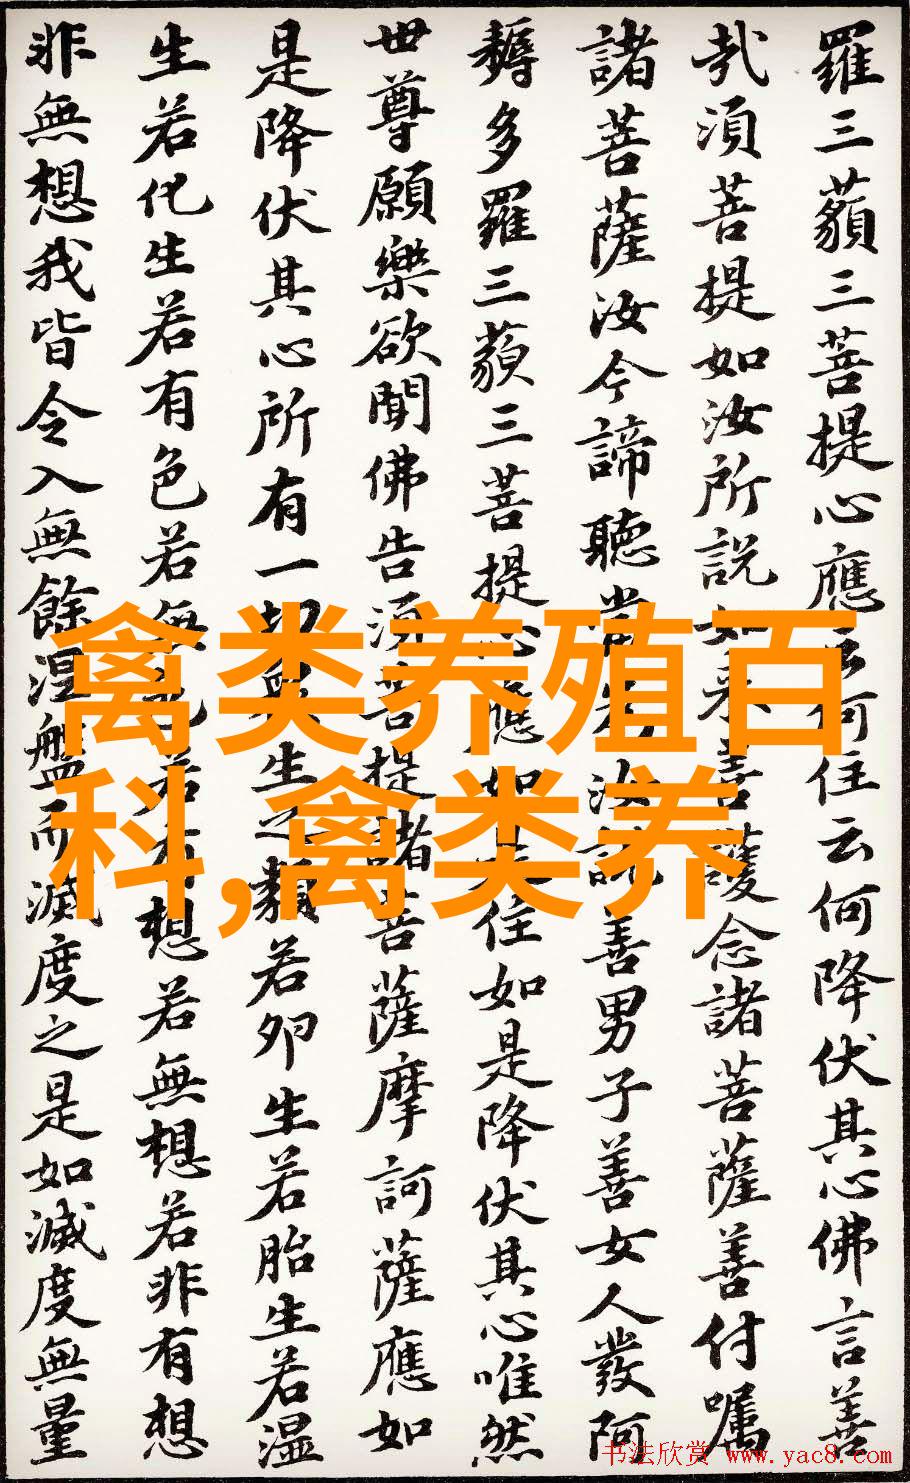 羅三藐三菩提心應云何住云何降伏其心佛言善
哉須菩提如汝所說如來善護念諸菩薩善付囑
諸菩薩汝今諦聽當為汝說善男子善女人發阿
耨多羅三藐三菩提心應如是住如是降伏其心唯然
世尊願樂欲聞佛告須菩提諸菩薩摩訶薩應如
是降伏其心所有一切眾生之類若卵生若胎生若湿
生若化生若有色若無色若有想若無想若非有想
非無想我皆令入無餘涅盤而滅度之是如滅度無量
禽类养殖百
科,禽类养
书法欣赏 www.yac8.com